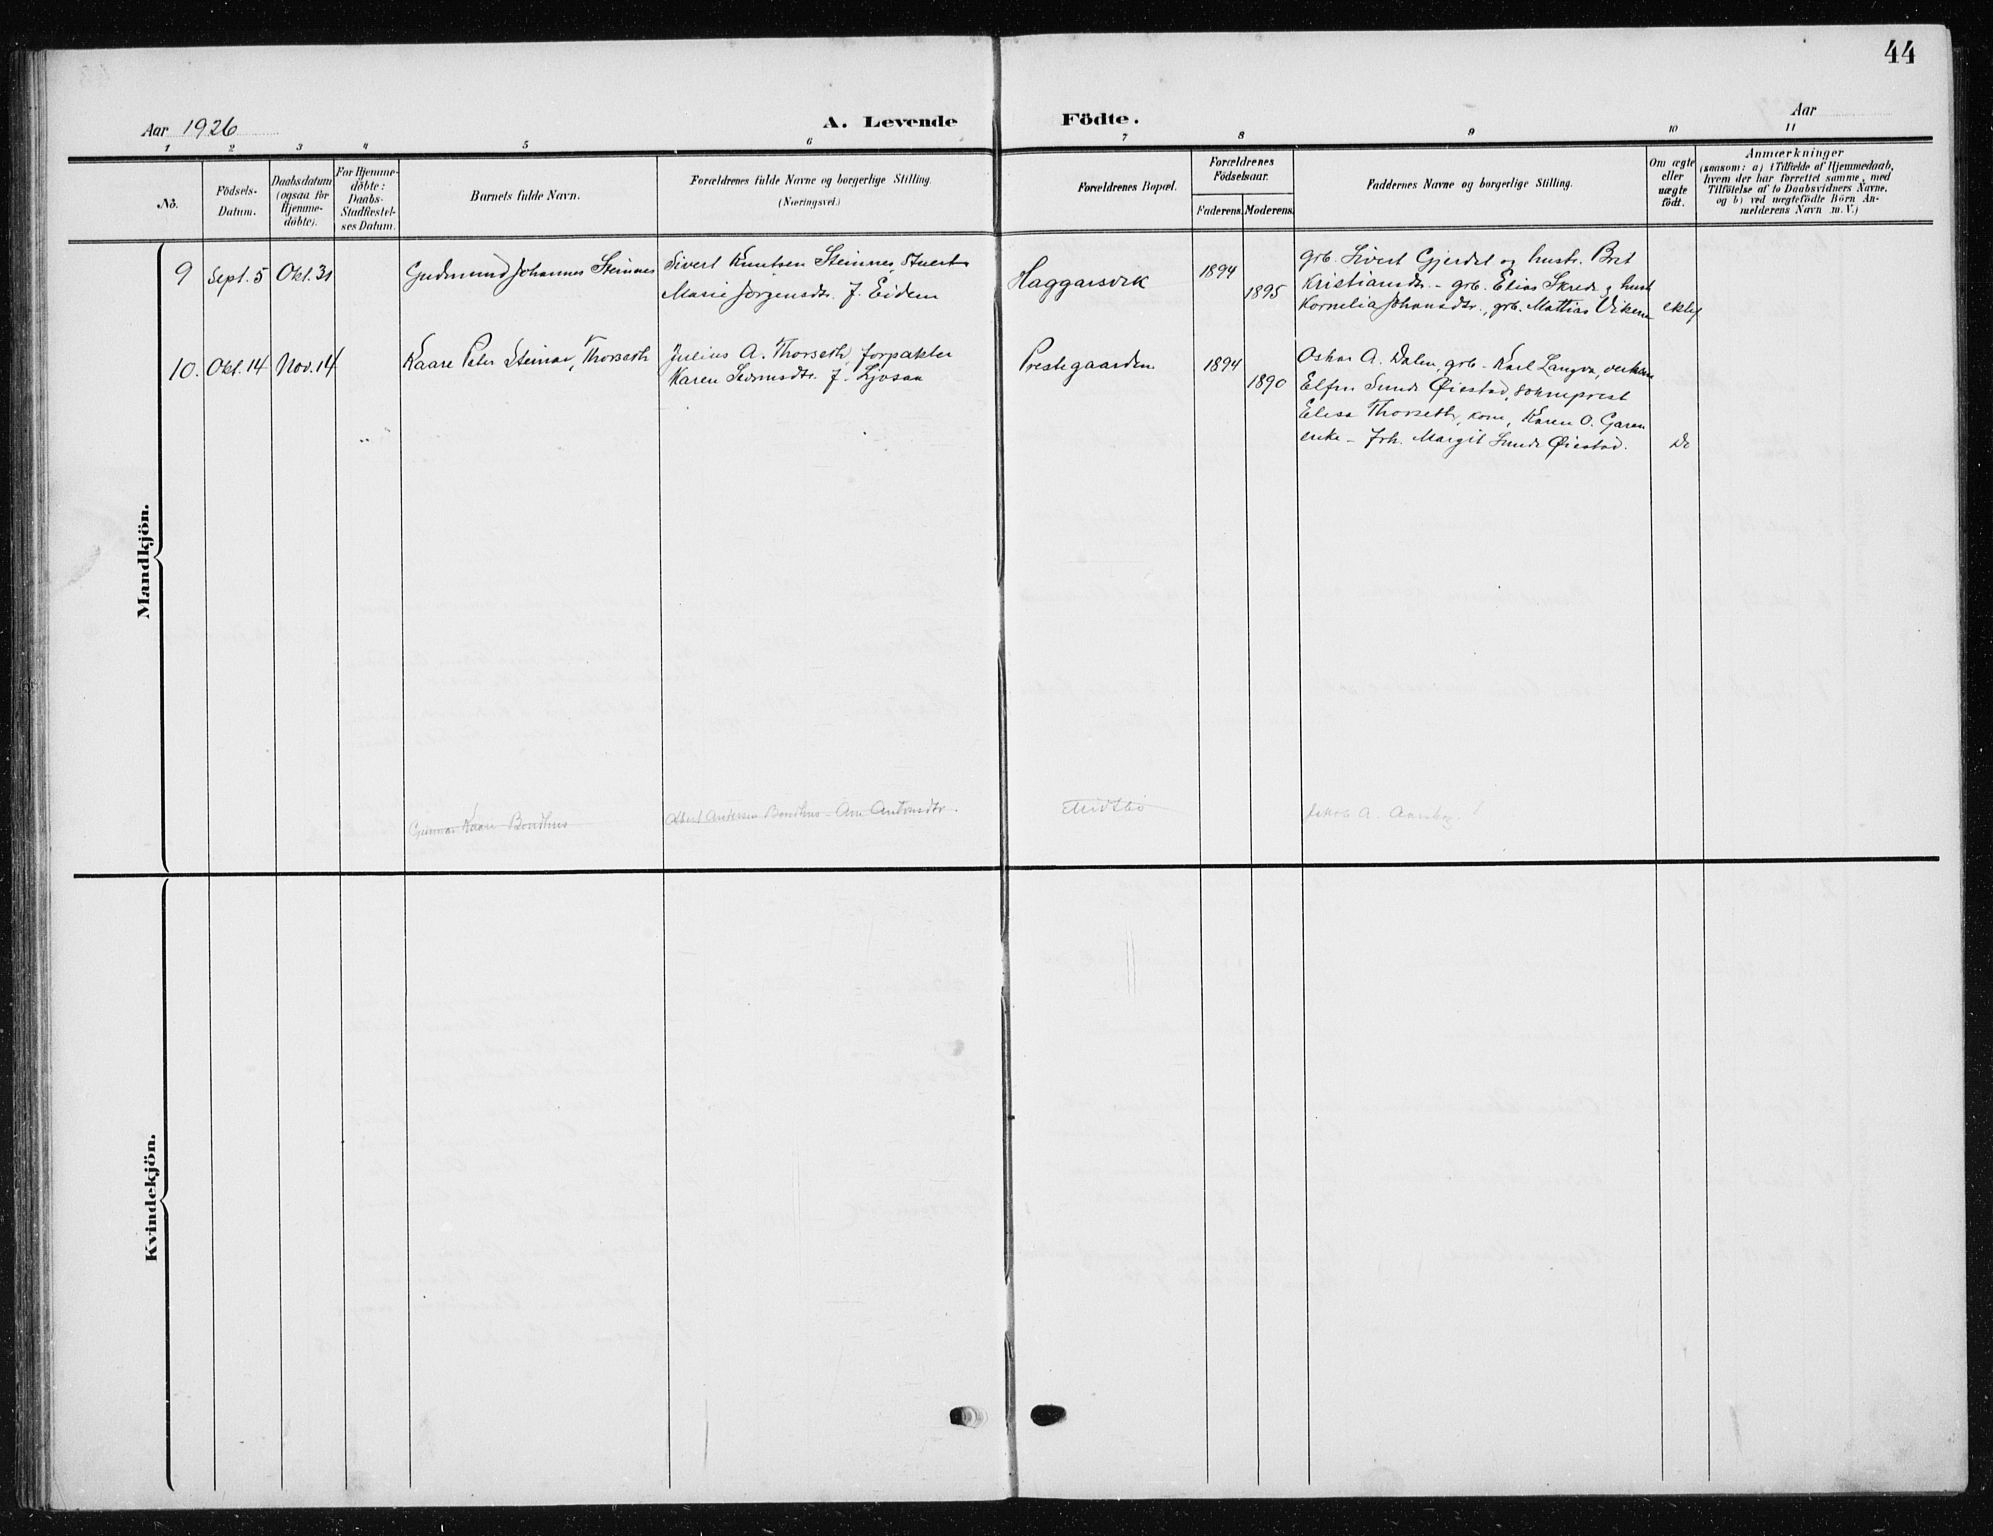 44
Aar 1926
A. Levende Födte.
Aar
1 2 3 4 5 6 7 8 9 10 11
No.
Födsels-
Datum.
Daabsdatum
(ogsaa for
Hjemme-
döbte).
For Hjemme-
döbte:
Daabs-
Stadfæstel-
ses Datum.
Barnets fulde Navn.
Forældrenes fulde Navne og borgerlige Stilling.
(Næringsvei.)
Forældrenes Bopæl.
Forældrenes
Födselsaar.
Faderens. Moderens.
Faddernes Navne og borgerlige Stilling.
Om ægte
eller
uægte
födt.
Anmærkninger
(saasom: a) i Tilfælde af Hjemmedaab,
hvem der har forrettet samme, med
Tilföielse af to Daabsvidners Navne,
og b) ved uægtefödte Börn An-
melderens Navn m. V.)
Mandkjön.
9 Sept. 5 Okt. 31 Gudmund Johannes Steinnes
Sivert Knutsen Steinnes,
Marie Jørgensdtr. f. Eidem
Haggarsvik
1894
1895
grb. Sivert Gjerdet og hustr. Brit
Kristiansdtr. - grb. Elias Skrede og hust
Kornelia Johansdtr., grb. Mattias Viken
10. Okt. 14 Nov. 14 Kaare Peter Steinar, Thorseth
Julius A. Thorseth, forpakter
Karen f. Ljosaa
Prestegaarden
1894
1890
Oskar A. Dalen, grb. - Karl Langva,
Sunde Øiestad, sokneprest
Elisa Thorseth, kone, Karen O. Garen
enke - frk. Margit Sunde Øiestad.
Do
Gunnar Kaare Bondhus
Albert Andersen Bondhus - Ane Antonsdtr.
Midtbö
Jakob A.
Kvindekjön.